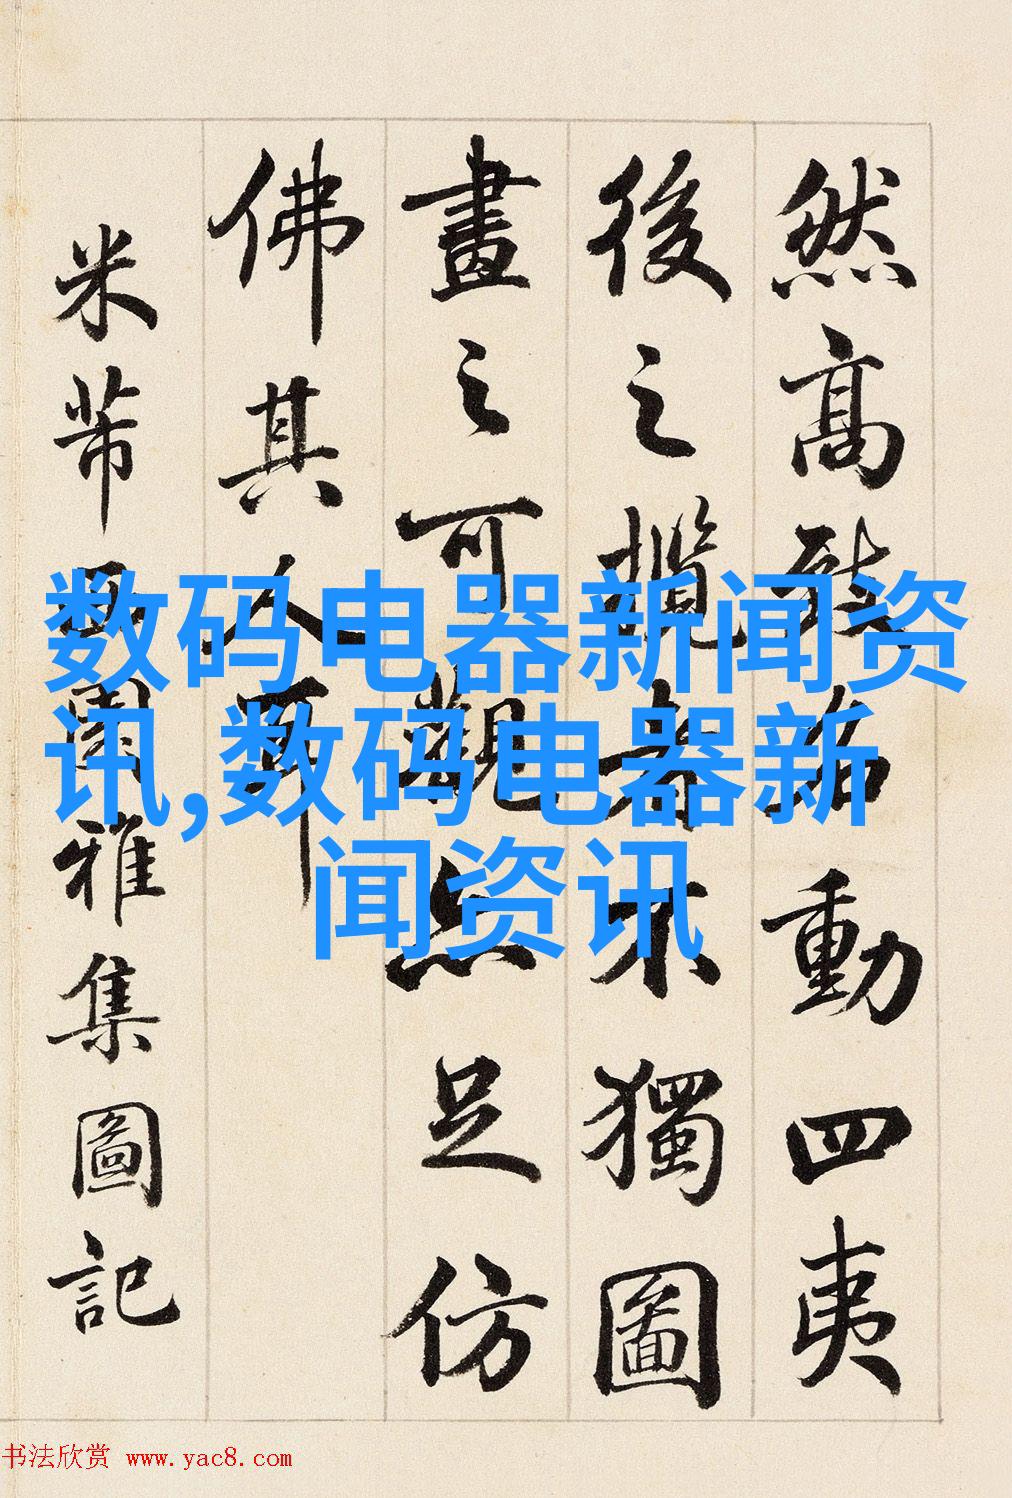 然高致名動四夷
後之攬者不獨圖
畫之可觀亦足仿
佛其人耳
米芾西園雅集圖記
数码电器新闻资
讯,数码电器新
闻资讯
书法欣赏 www.yac8.com